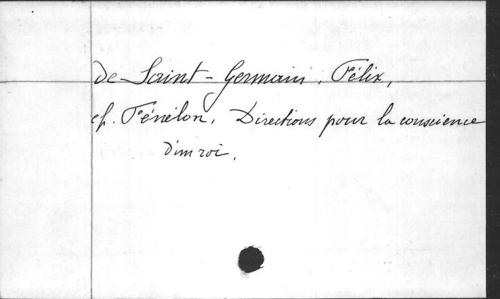 de Saint-Germain, Félix,
cf. Fénélon, Directions pour la conscience
d'un roi.